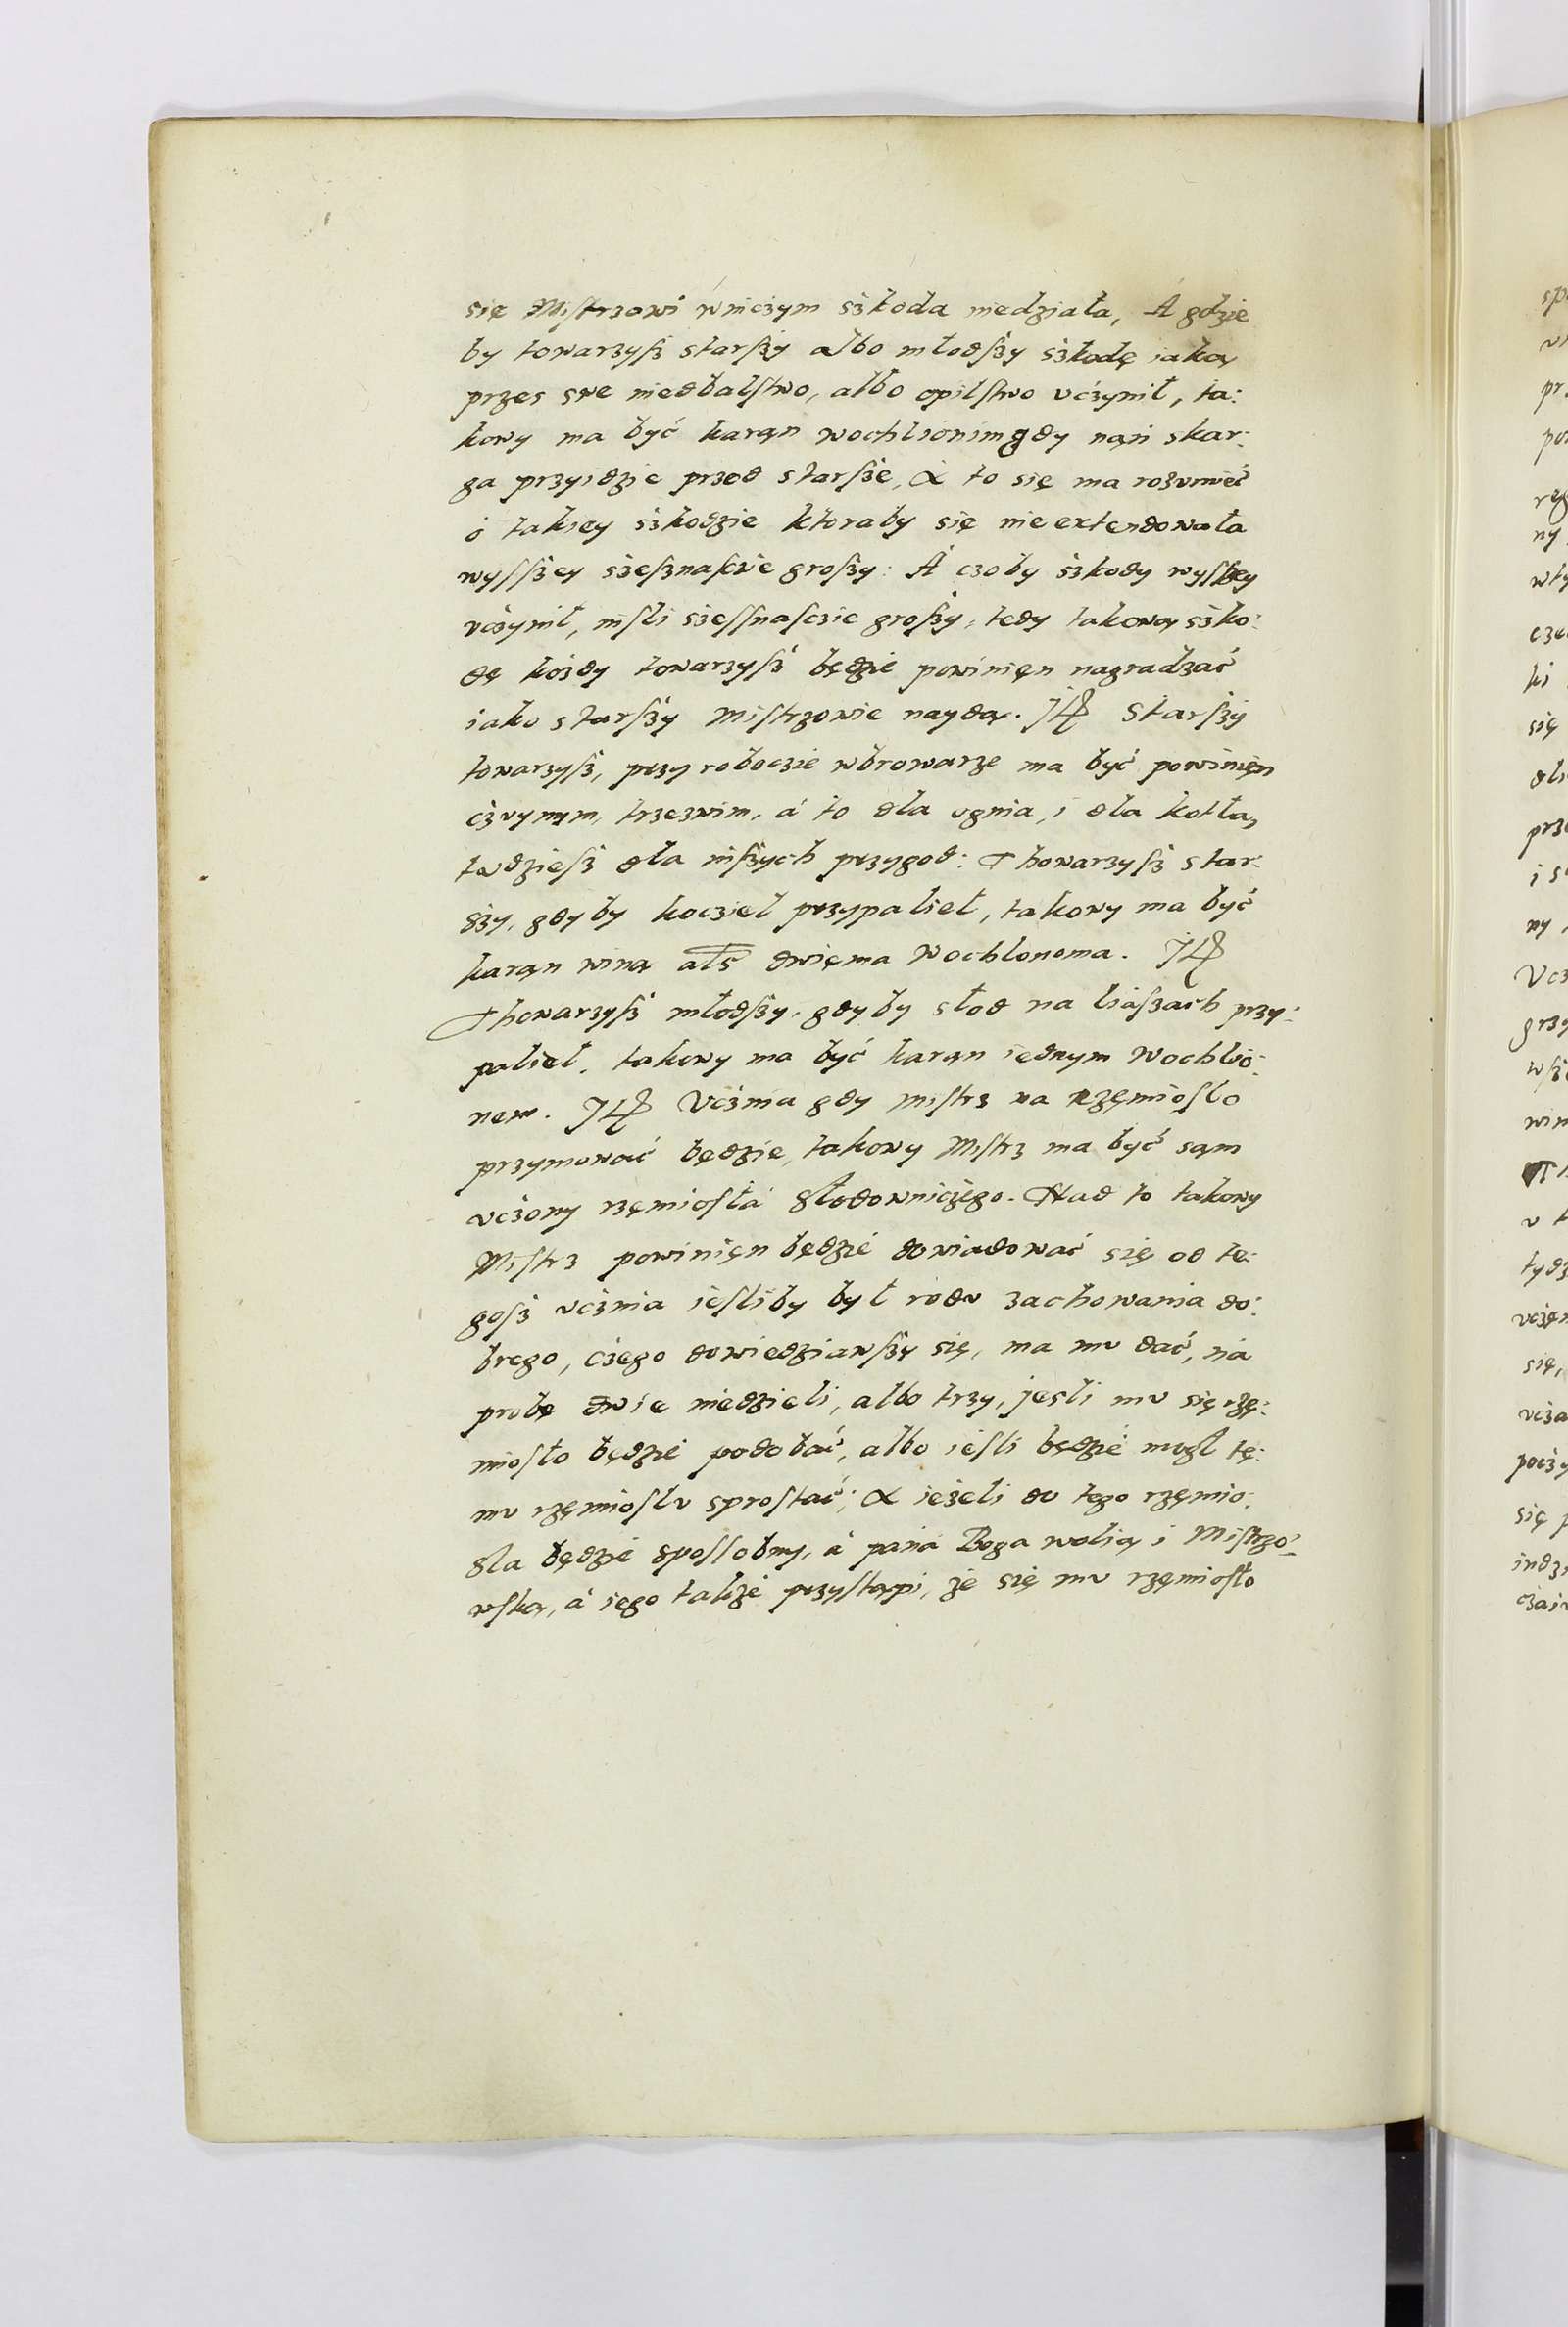 się Mistrzowi wniczym szkoda niedziała, A gdzie
by towarzysz starszy albo młodszy szkodę iaką
przes swe niedbalstwo, albo opilstwo vczynił, ta:
kowy ma być karąn wochlionim gdy nąń skar:
ga przyidzie przed starsze, A to się ma rozvmieć
o takiey szkodzie ktoraby się nie extendowała
wysszey szesznascie groszy: A czoby szkody wyszey
vczynił, nisli szessnasczie groszy, tedy takową szko:
dę kożdy towarzysz będzie powinięn nagradzać
iako starszy Mistrzowie naydą. It Starszy
towarzysz, przy roboczie wbrowarze ma być powinięn
czvynym, trzezwim, á to dla ognia, i dla kotła,
tvdziesz dla inszych przygod: Thowarzysz star:
szy, gdyby koczieł przypalieł, takowy ma być
karąn winą als dwięma wochlonoma. It
Thowarzysz młodszy, gdyby słod na liaszach przy:
palieł, takowy ma być karąn iednym wochlio:
nem. It Vcznia gdy mistrz na rzęmiosło
przymować będzie, takowy Mistrz ma być sąm
vczony rzęmiosła słodowniczego. Nad to takowy
Mistrz powinięn będzie dowiadować się od te:
gosz vcznia iesliby był rodv zachowania do:
brego, czego dowiedziawszy się, ma mv dać, ná
probę dwie niedzieli, albo trzy, jesli mv się rzę:
miosło będzie podobać, albo iesli będzie mogł tę:
mv rzęmioslv sprostać; A ieżeli do tego rzęmio:
sla będzie spossobny, á pána Boga wolią i Mistrzo:
wską, á iego także przystąpi, że się mv rzęmiosło